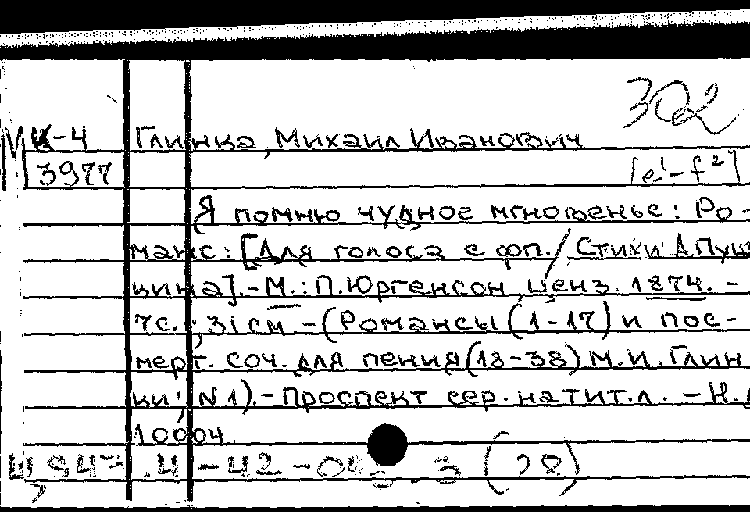 302
МК-4 Глинка, Михаил Иванович
3977 [e¹-f²]
Я помню чудное мгновенье: Ро-
манс: [Для голоса с фп./Стихи А.Пуш
кина].-М.: П.Юргенсон, ценз. 1874. -
7с.; 31см -(Романсы (1-17) и пос-
мерт. соч. для пения(18-38) М.И. Глин
ки; N1).- Проспект сер. на тит.л. - Н.
10004